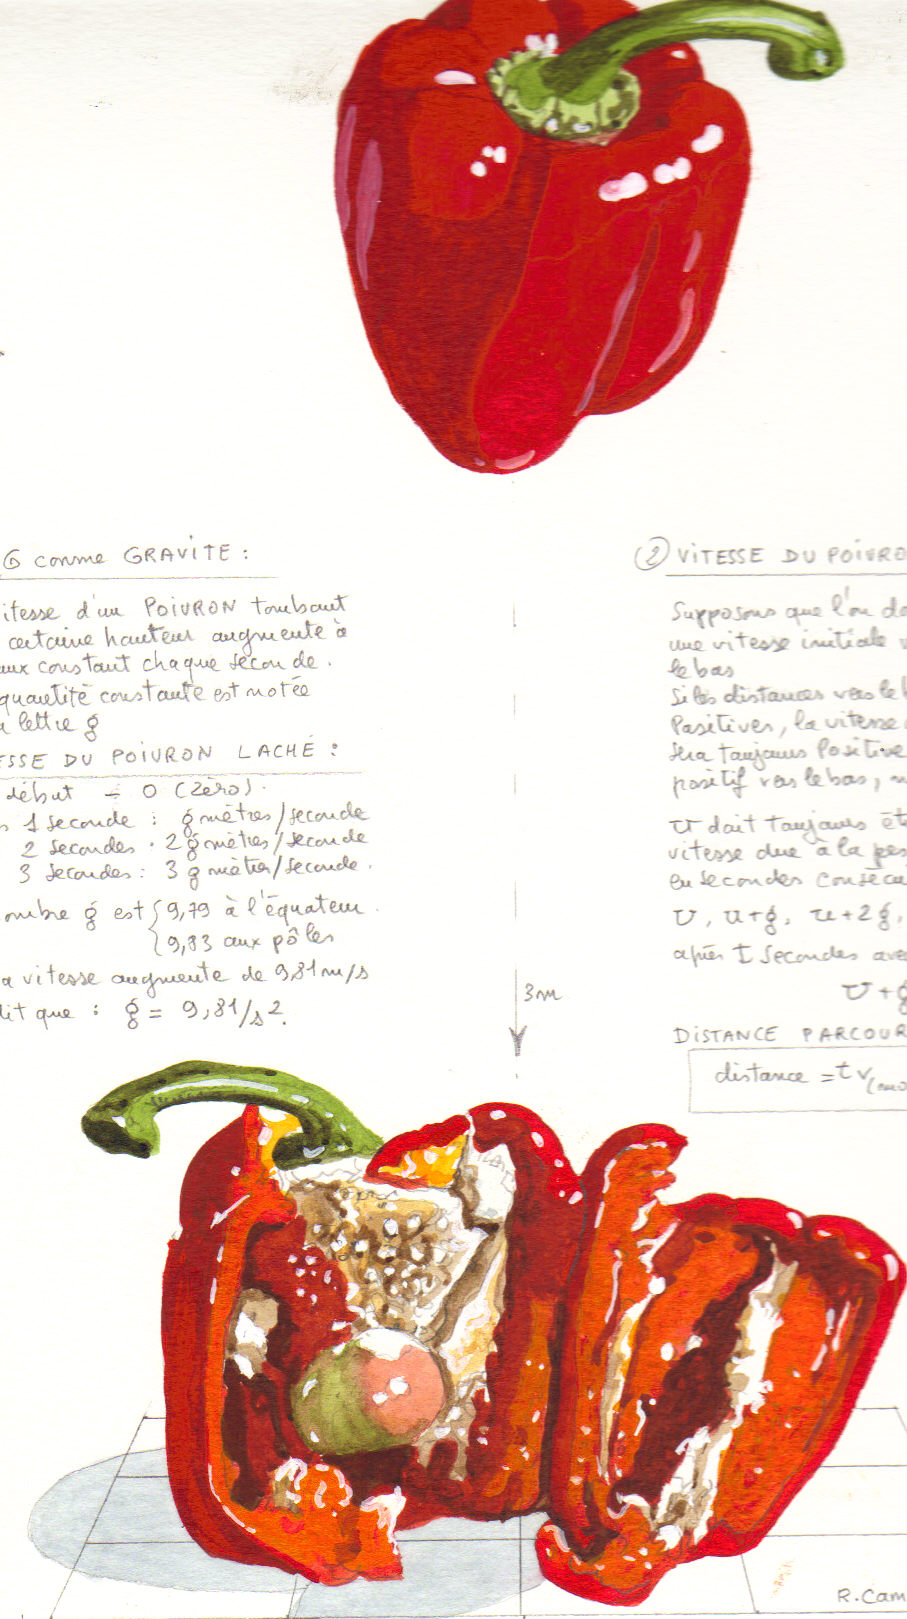 G comme GRAVITÉ :
itesse d'un POIVRON tombant
certaine hauteur augmente à
aux constant chaque seconde.
quantité constante est notée
a lettre g
ESSE DU POIVRON LACHÉ :
début = 0 (zéro).
s 1 seconde : g mètres/seconde
2 secondes : 2 g mètres/seconde
3 secondes : 3 g mètres/seconde.
ombre g est { 9,79 à l'équateur.
{ 9,83 aux pôles
a vitesse augmente de 9,81 m/s
dit que : g = 9,81/s².
3m
② VITESSE DU POIVRO
Supposons que l'on do
une vitesse initiale v
le bas
Si les distances vers le b
Positives, la vitesse
sera toujours Positive
positif vers le bas,
v doit toujours êt
vitesse due à la pes
en secondes consécu
v, u+g, u+2g,
après t secondes avec
v+g
DISTANCE PARCOUR
distance = t v (mo
R. Cam